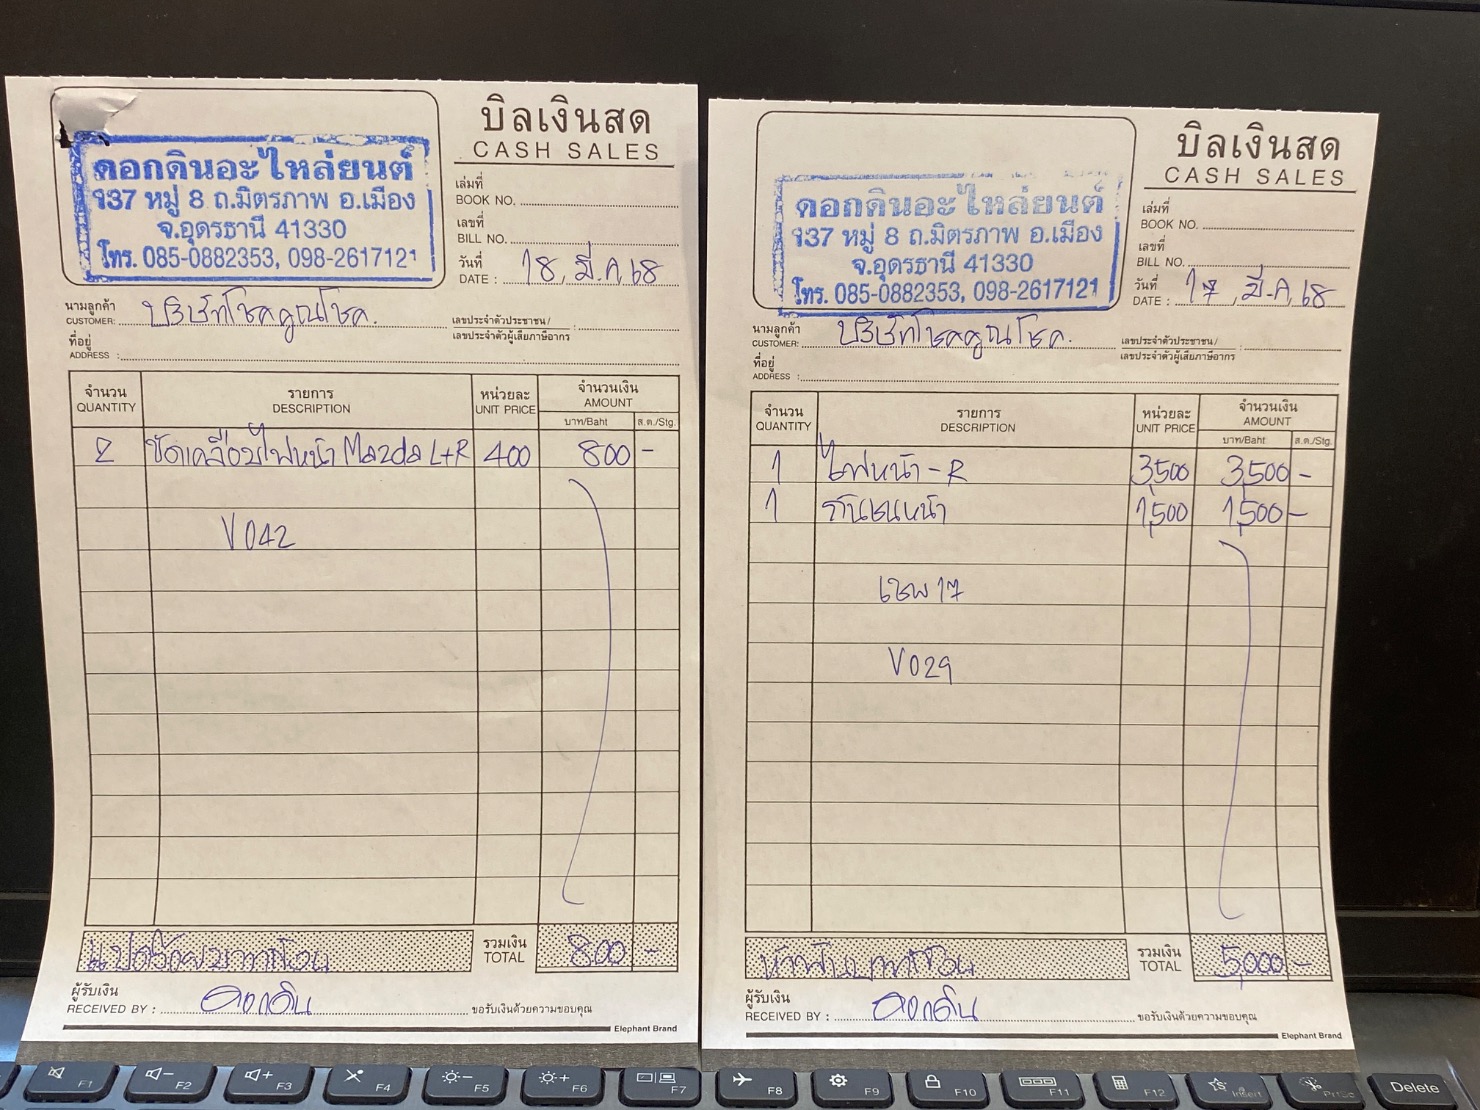 บิลเงินสด
CASH SALES
ดอกดินอะไหล่ยนต์
137 หมู่ 8 ถ.มิตรภาพ อ.เมือง
จ.อุดรธานี 41330
โทร. 085-0882353, 098-2617121
เล่มที่
BOOK NO.
เลขที่
BILL NO.
วันที่
DATE : 18, มี.ค, 68
นามลูกค้า
CUSTOMER: บริษัทโชคคูณโชค.
เลขประจำตัวประชาชน/
เลขประจำตัวผู้เสียภาษีอากร :
ที่อยู่
ADDRESS :
จำนวน รายการ หน่วยละ จำนวนเงิน
QUANTITY DESCRIPTION UNIT PRICE AMOUNT
บาท/Baht ส.ต./Stg.
2 ขัดเคลือบไฟหน้า Mazda L+R 400 800 -
V042
แปดร้อยบาทถ้วน
รวมเงิน
TOTAL 800 -
ผู้รับเงิน
RECEIVED BY : ดอกดิน ขอรับเงินด้วยความขอบคุณ
Elephant Brand
บิลเงินสด
CASH SALES
ดอกดินอะไหล่ยนต์
137 หมู่ 8 ถ.มิตรภาพ อ.เมือง
จ.อุดรธานี 41330
โทร. 085-0882353, 098-2617121
เล่มที่
BOOK NO.
เลขที่
BILL NO.
วันที่
DATE : 17, มี.ค, 68
นามลูกค้า
CUSTOMER: บริษัทโชคคูณโชค.
เลขประจำตัวประชาชน/
เลขประจำตัวผู้เสียภาษีอากร :
ที่อยู่
ADDRESS :
จำนวน รายการ หน่วยละ จำนวนเงิน
QUANTITY DESCRIPTION UNIT PRICE AMOUNT
บาท/Baht ส.ต./Stg.
1 ไฟหน้า - R 3,500 3,500 -
1 กันชนหน้า 1,500 1,500 -
เชพ 17
V029
ห้าพันบาทถ้วน
รวมเงิน
TOTAL 5,000 -
ผู้รับเงิน
RECEIVED BY : ดอกดิน ขอรับเงินด้วยความขอบคุณ
Elephant Brand
F1 F2 F3 F4 F5 F6 F7 F8 F9 F10 F11 F12 Insert PrtSc Delete